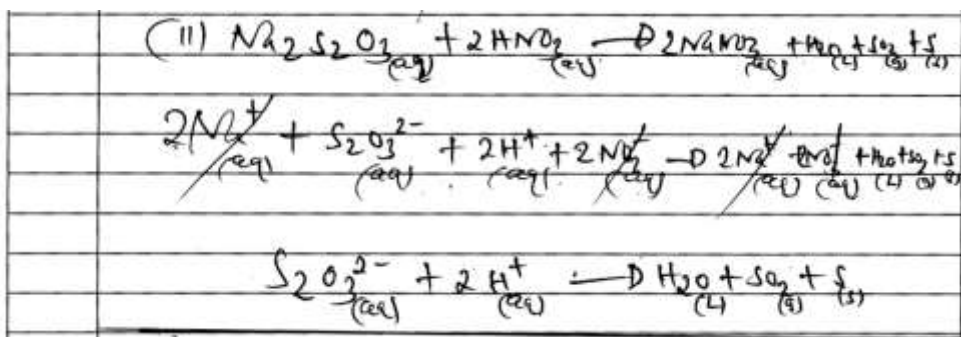 (11) Na2S2O3(aq) + 2HNO3(aq) → 2NaNO3(aq) + H2O(L) + SO2(g) + S(s)
2Na+(aq) + S2O3 2-(aq) + 2H+(aq) + 2NO3-(aq) → 2Na+(aq) + 2NO3-(aq) + H2O(L) + SO2(g) + S(s)
S2O3 2-(aq) + 2H+(aq) → H2O(L) + SO2(g) + S(s)